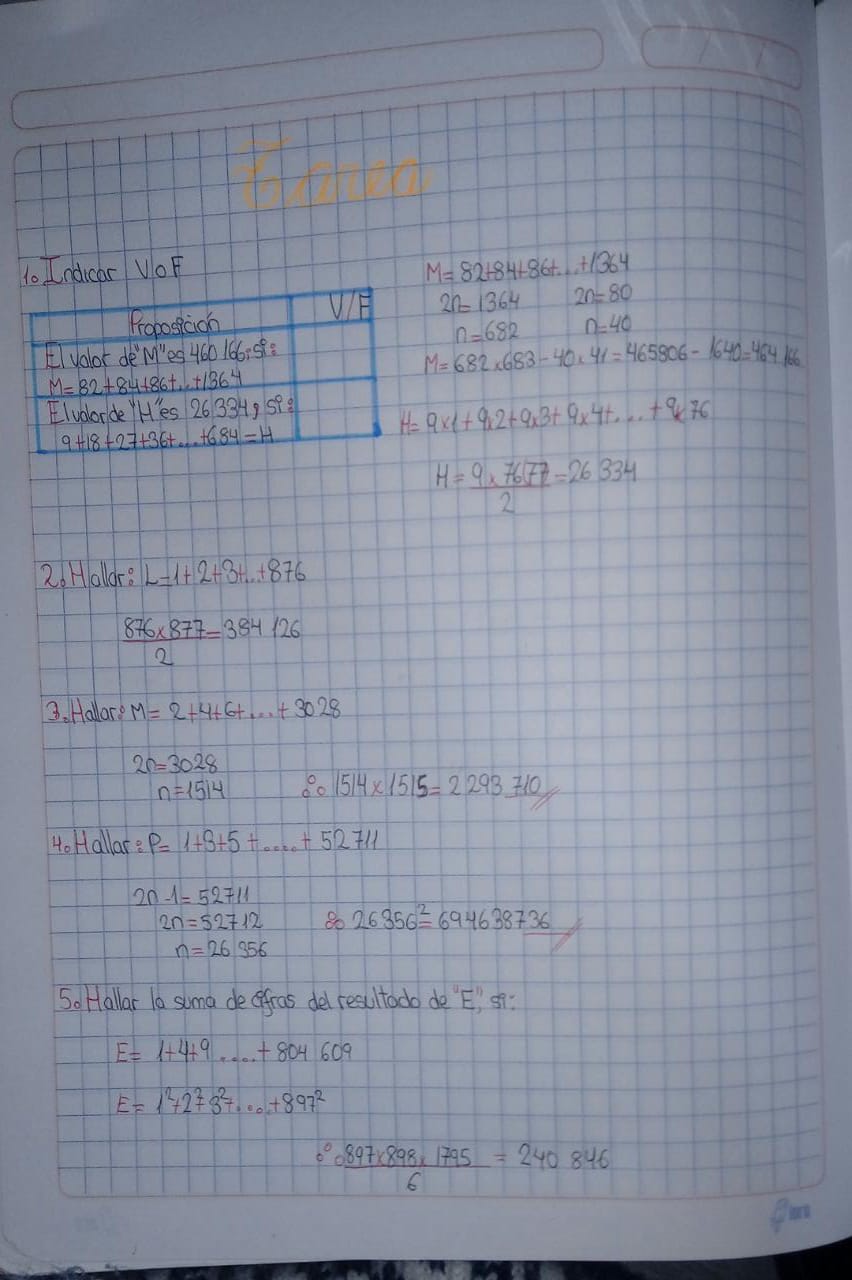 Tarea
1. Indicar V o F
Proposición V/F
El valor de "M" es 460 166, si:
M= 82+84+86+...+1364
El valor de "H" es 26 334, si:
9+18+27+36+...+684=H
M= 82+84+86+...+1364
2n=1364 2n=80
n=682 n=40
M=682x683-40x41=465806-1640=464 166
H= 9x1+9x2+9x3+9x4+....+9x76
H= 9x76(77)/2=26 334
2. Hallar: L=1+2+3+...+876
876x877/2=384 126
3. Hallar: M= 2+4+6+....+3028
2n=3028
n=1514 ∴ 1514x1515=2 293 710
4. Hallar: P= 1+3+5+.....+52711
2n-1=52711
2n=52712 ∴ 26356²=694638736
n=26 356
5. Hallar la suma de cifras del resultado de "E", si:
E= 1+4+9.....+804 609
E= 1²+2²+3²+....+897²
∴ 897x898x1795/6 = 240 846